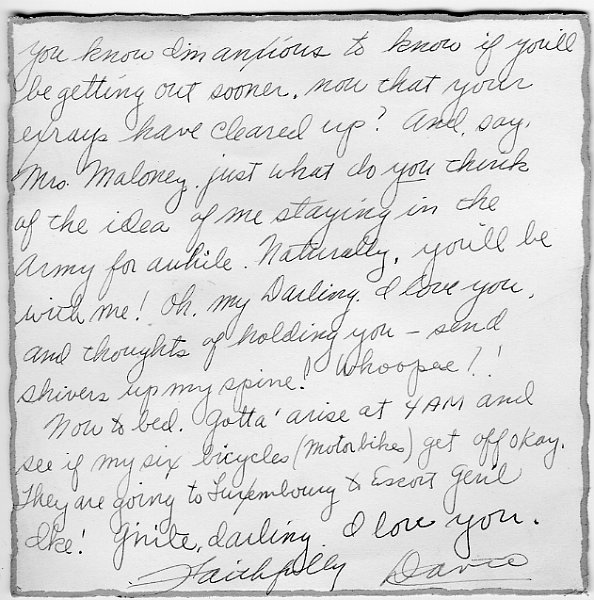 you know I'm anxious to know if you'll
be getting out sooner, now that your
exrays have cleared up? And, say,
Mrs. Maloney, just what do you think
of the idea of me staying in the
Army for awhile. Naturally, you'll be
with me! Oh, my Darling. I love you,
and thoughts of holding you – send
shivers up my spine! Whoopee!!
Now to bed. Gotta' arise at 4 AM and
see if my six bicycles (motorbikes) get off okay.
They are going to Luxembourg to Escort Gen'l
Ike! G'nite, darling. I love you.
Faithfully